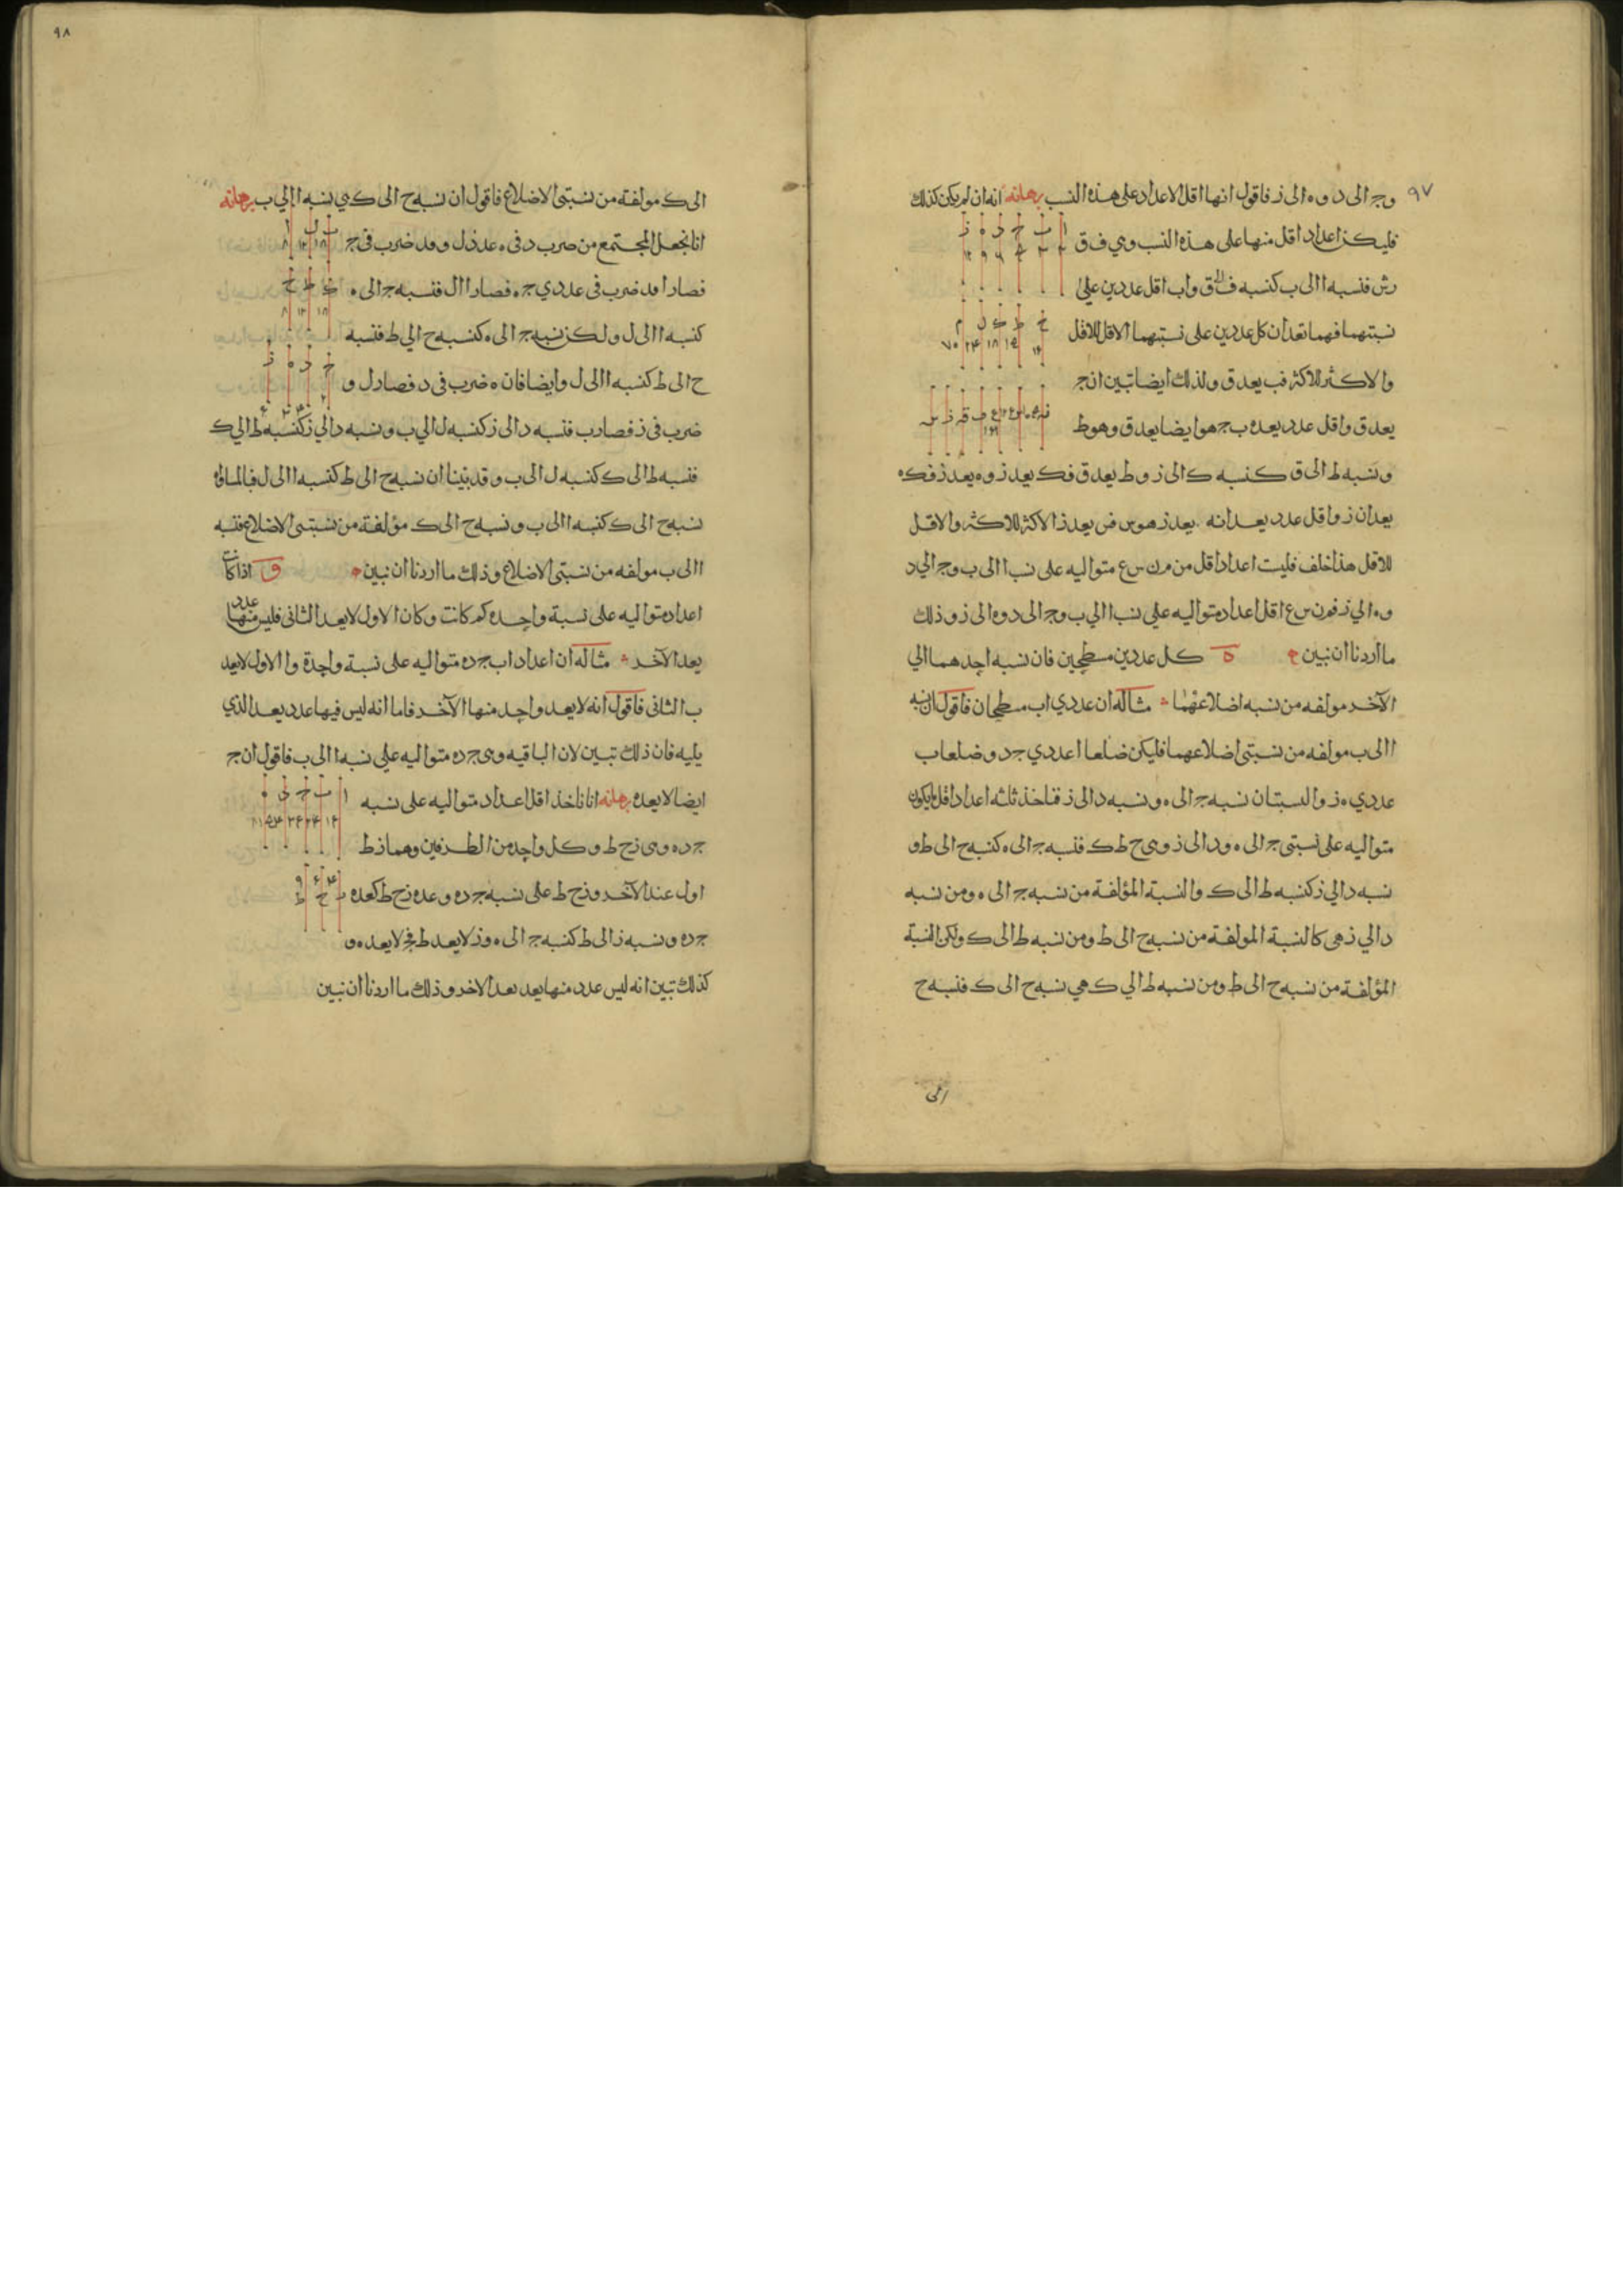 ٩٧
وج الى د وه الى ز فاقول انها اقل الاعداد على هذه النسب برهانه انه ان لم يكن كذلك
فليكن اعداد اقل منها على هذه النسب وهي ف ق
ا ب ج د ه ز
رش فنسبه ا الى ب كنسبه ف الى ق واب اقل عددين على
نسبتهما فهما تعدان كل عددين على نسبتهما الاقل للاقل
ح ط ك ل م
والاكثر للاكثر فب يعد ق ولذلك ايضا تبين ان ج
يعد ق واقل عدد يعده ب ج هو ايضا يعد ق وهو ط
ونسبه ط الى ق كنسبه ك الى ز و ط يعد ق فك يعد ز وه يعد ز فك ه
يعدان ز واقل عدد يعدانه يعد ز هو س فس يعد ز الاكثر للاكثر والاقل
للاقل هذا خلف فليست اعداد اقل من م ن س ع متواليه على نسب ا الى ب وج الى د
وه الى ز فم ن س ع اقل اعداد متواليه على نسب ا الى ب وج الى د وه الى ز وذلك
ما اردنا ان نبين ه كل عددين مسطحين فان نسبه احدهما الي
الآخر مولفه من نسبه اضلاعهما مثاله ان عددي اب مسطحان فاقول ان نسبه
ا الى ب مولفه من نسبتى اضلاعهما فليكن ضلعا ا عددي ج د وضلعا ب
عددي ه ز والنسبتان نسبه ج الى ه ونسبه د الى ز فناخذ ثلثه اعداد اقل ما يكون
متواليه على نسبتى ج الى ه ود الى ز وهى ح ط ك فنسبه ج الى ه كنسبه ح الى ط و
نسبه د الي ز كنسبه ط الى ك والنسبة المؤلفة من نسبه ج الى ه ومن نسبه
د الي ز هى كالنسبة المولفة من نسبه ح الى ط ومن نسبه ط الى ك ولكن النسبة
المؤلفة من نسبه ح الى ط ومن نسبه ط الي ك هي نسبه ح الى ك فنسبه ح
الى
٩٨
الى ك مولفة من نسبتى الاضلاع فاقول ان نسبه ح الى ك هي نسبه ا الي ب برهانه
انا نجعل المجتمع من ضرب د فى ه عدد ل و د قد ضرب فى ج
فصار ا وقد ضرب فى عددي ج ه فصار ا ل فنسبه ج الى ه
ك ط ح
كنسبه ا الى ل ولكن نسبه ج الى ه كنسبه ح الي ط فنسبه
ح الى ط كنسبه ا الى ل وايضا فان ه ضرب فى د فصار ل و
ج د ه ز
ضرب فى ز فصار ب فنسبه د الى ز كنسبه ل الي ب ونسبه د الي ز كنسبه ط الي ك
فنسبه ط الى ك كنسبه ل الى ب وقد بينا ان نسبه ح الى ط كنسبه ا الى ل فبالمساواه
نسبه ح الى ك كنسبه ا الى ب ونسبه ح الى ك مؤلفة من نسبتى الاضلاع فنسبه
ا الى ب مولفه من نسبتى الاضلاع وذلك ما اردنا ان نبين و اذا كانت
اعداد متواليه على نسبة واحده كم كانت وكان الاول لا يعد الثانى فليس منها عدد
يعد الآخر مثاله ان اعداد اب ج د ه متواليه على نسبة واحدة وا الاول لا يعد
ب الثانى فاقول انه لا يعد واحد منها الآخر فاما انه ليس فيها عدد يعد الذي
يليه فان ذلك تبين لان الباقيه وهى ج د ه متواليه على نسبه ا الى ب فاقول ان ج
ايضا لا يعد ه برهانه انا ناخذ اقل اعداد متواليه على نسبه
ا ب ج د ه
ج د ه وهى ز ح ط وكل واحد من الطرفين وهما ز ط
اول عند الآخر و ز ح ط على نسبه ج د ه وعده ز ح ط كعده
ز ح ط
ج د ه ونسبه ز الى ط كنسبه ج الى ه و ز لا يعد ط فج لا يعد ه و
كذلك تبين انه ليس عدد منها يعد الاخر وذلك ما اردنا ان نبين